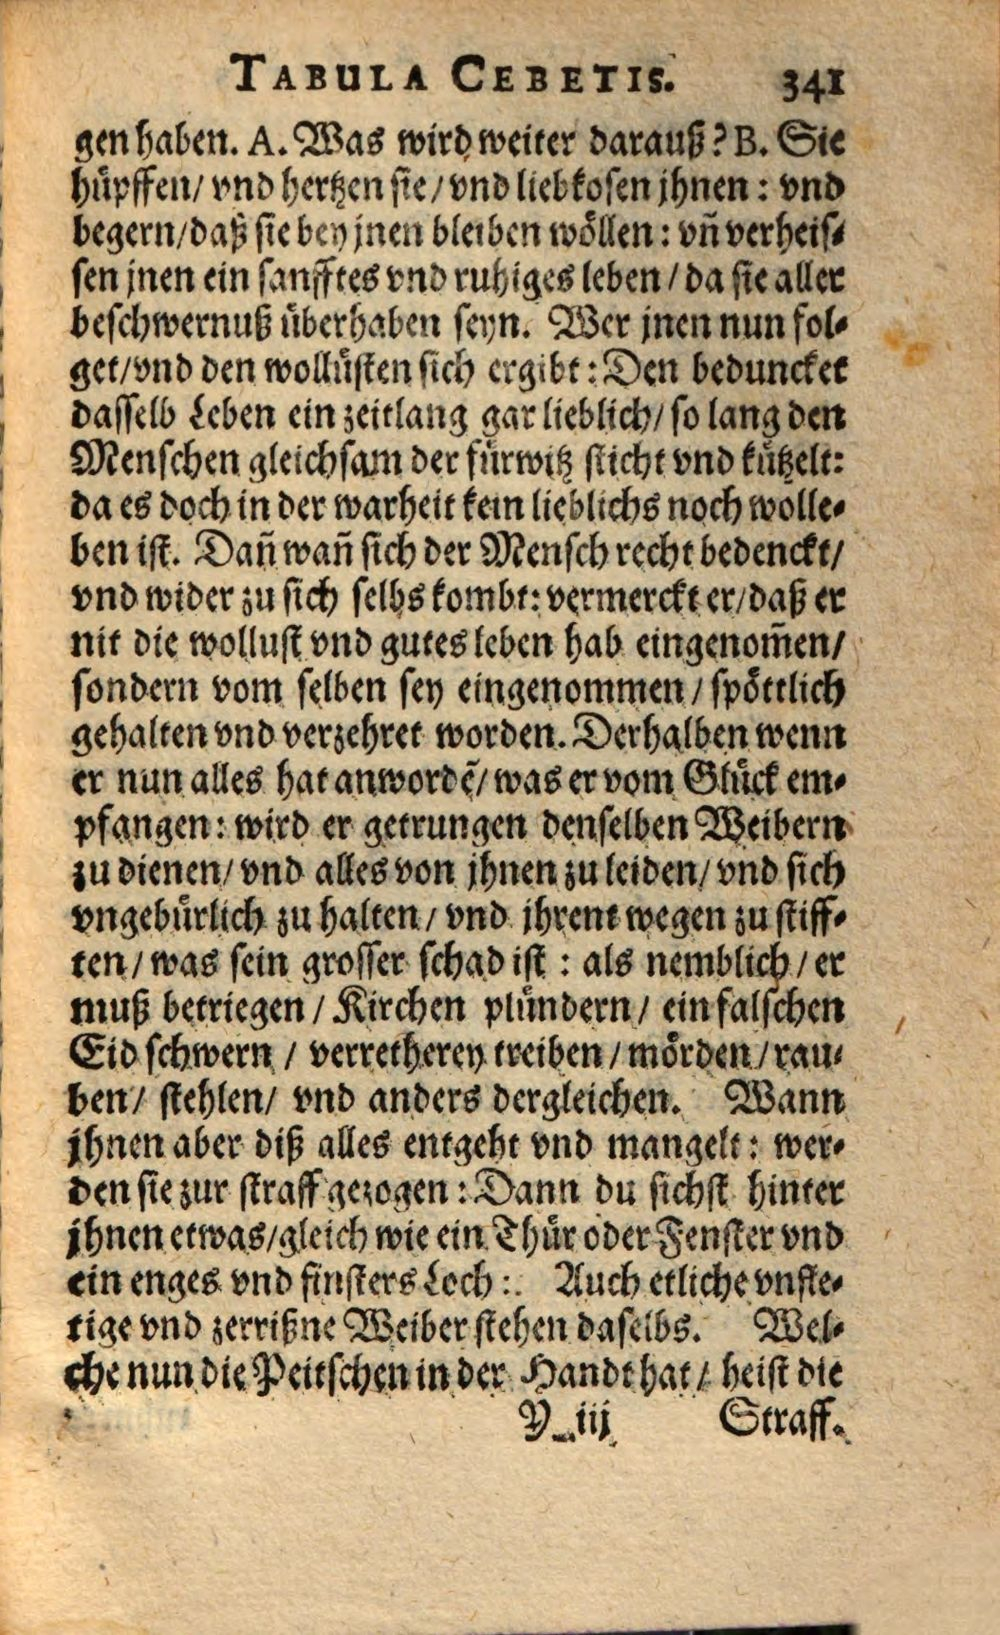 TABULA CEBETIS. 341
gen haben. A. Was wird weiter darauß? B. Sie
hüpffen/ vnd hertzen sie/ vnd liebkosen jhnen: vnd
begern/ daß sie bey jnen bleiben wöllen: vñ verheis-
sen jnen ein sanfftes vnd ruhiges leben / da sie aller
beschwernuß überhaben seyn. Wer jnen nun fol-
get/ vnd den wollüsten sich ergibt: Den beduncket
dasselb Leben ein zeitlang gar lieblich/ so lang den
Menschen gleichsam der fürwitz sticht vnd kützelt:
da es doch in der warheit kein lieblichs noch wolle-
ben ist. Dañ wañ sich der Mensch recht bedenckt/
vnd wider zu sich selbs kombt: vermerckt er/ daß er
nit die wollust vnd gutes leben hab eingenom̃en/
sondern vom selben sey eingenommen / spöttlich
gehalten vnd verzehret worden. Derhalben wenn
er nun alles hat anwordẽ/ was er vom Glück em-
pfangen: wird er getrungen denselben Weibern
zu dienen/ vnd alles von jhnen zu leiden/ vnd sich
vngebürlich zu halten / vnd jhrent wegen zu stiff-
ten / was sein grosser schad ist : als nemblich / er
muß betriegen / Kirchen plündern / ein falschen
Eid schwern / verretherey treiben / mörden / rau-
ben/ stehlen/ vnd anders dergleichen. Wann
jhnen aber diß alles entgeht vnd mangelt: wer-
den sie zur straff gezogen: Dann du sichst hinter
jhnen etwas/ gleich wie ein Thür oder Fenster vnd
ein enges vnd finsters Loch: Auch etliche vnfle-
tige vnd zerrißne Weiber stehen daselbs. Wel-
che nun die Peitschen in der Handt hat / heist die
Y iij Straff.